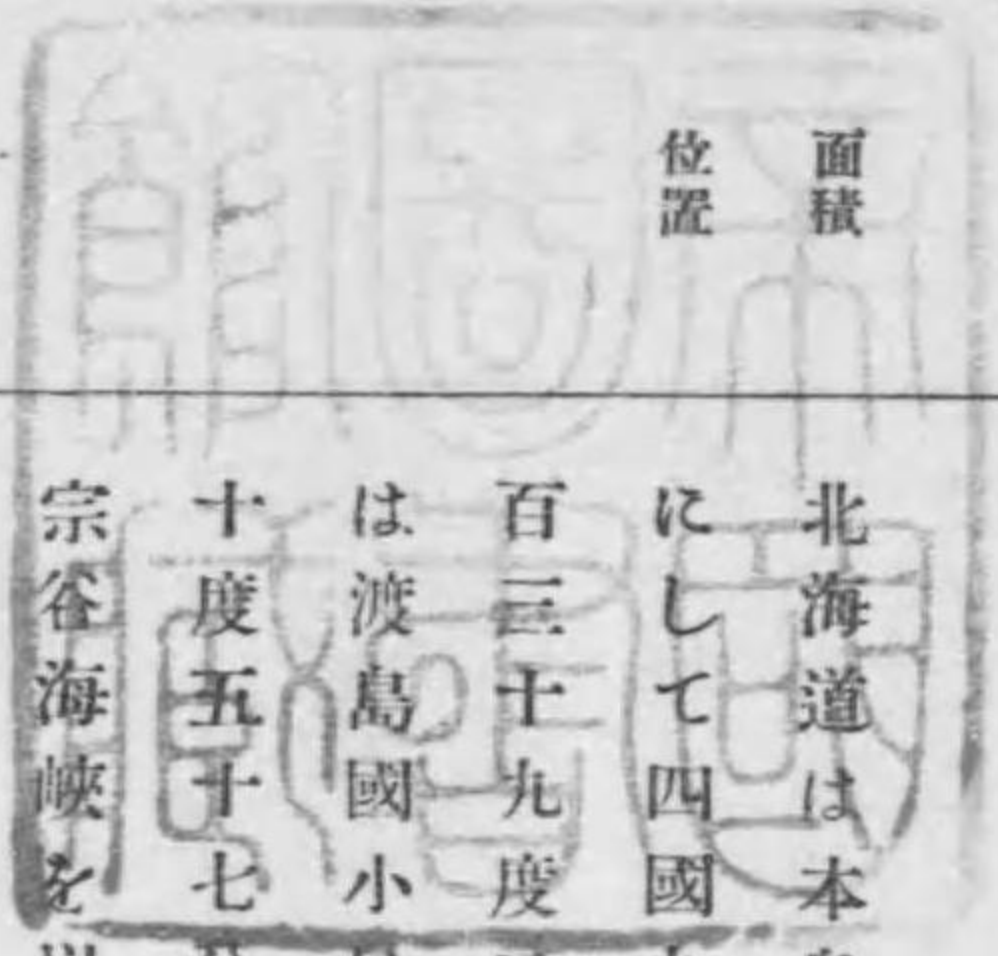 面積
位置
北海道は本
にして四國
百三十九度
は渡島國小
十度五十七
宗谷海峽を